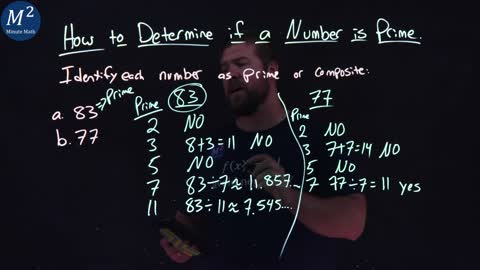 M²
Minute Math
How to Determine if a Number is Prime.
Identify each number as prime or composite:
a. 83 → Prime
b. 77
Prime 83
2 NO
3 8+3=11 NO
5 NO
7 83÷7≈11.857...
11 83÷11≈7.545....
77
Prime
2 NO
3 7+7=14 NO
5 NO
7 77÷7=11 yes